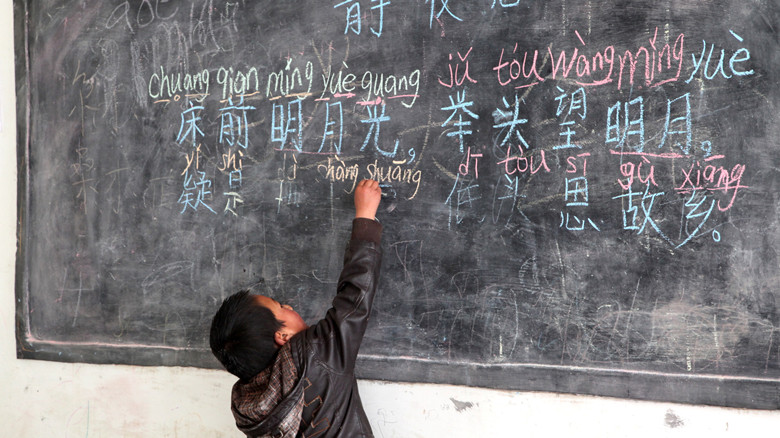 静夜
chuáng qián míng yuè guāng jǔ tóu Wàng míng yuè
床前明月光，举头望明月。
yí shì dì shàng shuāng dī tóu sī gù xiāng
疑是 低头思故乡。